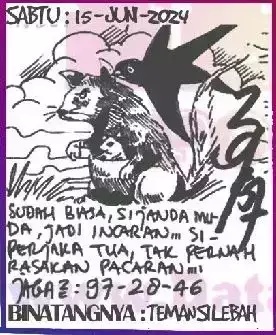 SABTU : 15-JUN-2024
SUDAH BIASA, SIJANDA MU-
DA, JADI INCARAN... SI-
PERJAKA TUA, TAK PERNAH
RASAKAN PACARAN...
JAGA2 : 97-28-46
BINATANGNYA : TEMANSILEBAH